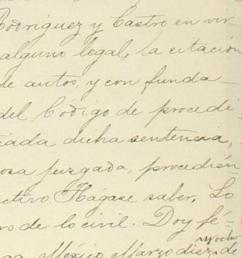 Rodriguez y Castro en vir
alguno legal, la citación
de autos, y con funda_
del Codigo de procedi
ciada dicha sentencia,
osa juzgada, procedién
ctivo Hágase saber. Lo
de lo civil. Doy fé-
yocho
México Marzo diez, de